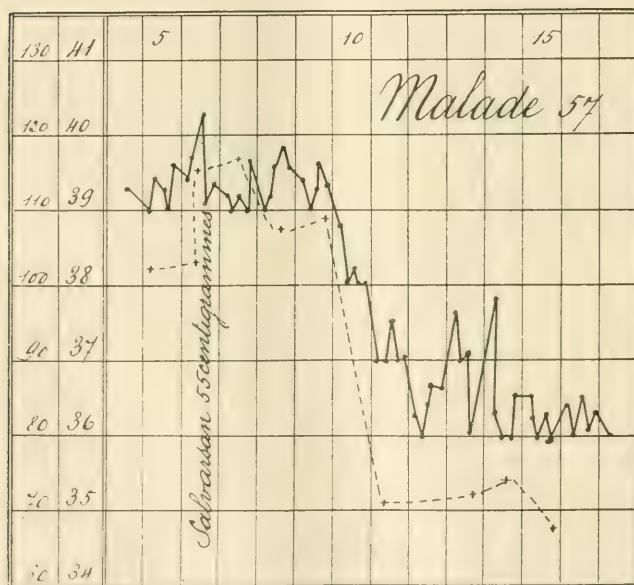 5 10 15
130 41
Malade 57
120 40
110 39
100 38
90 37
80 36
70 35
34
Salvarsan 55 centigrammes